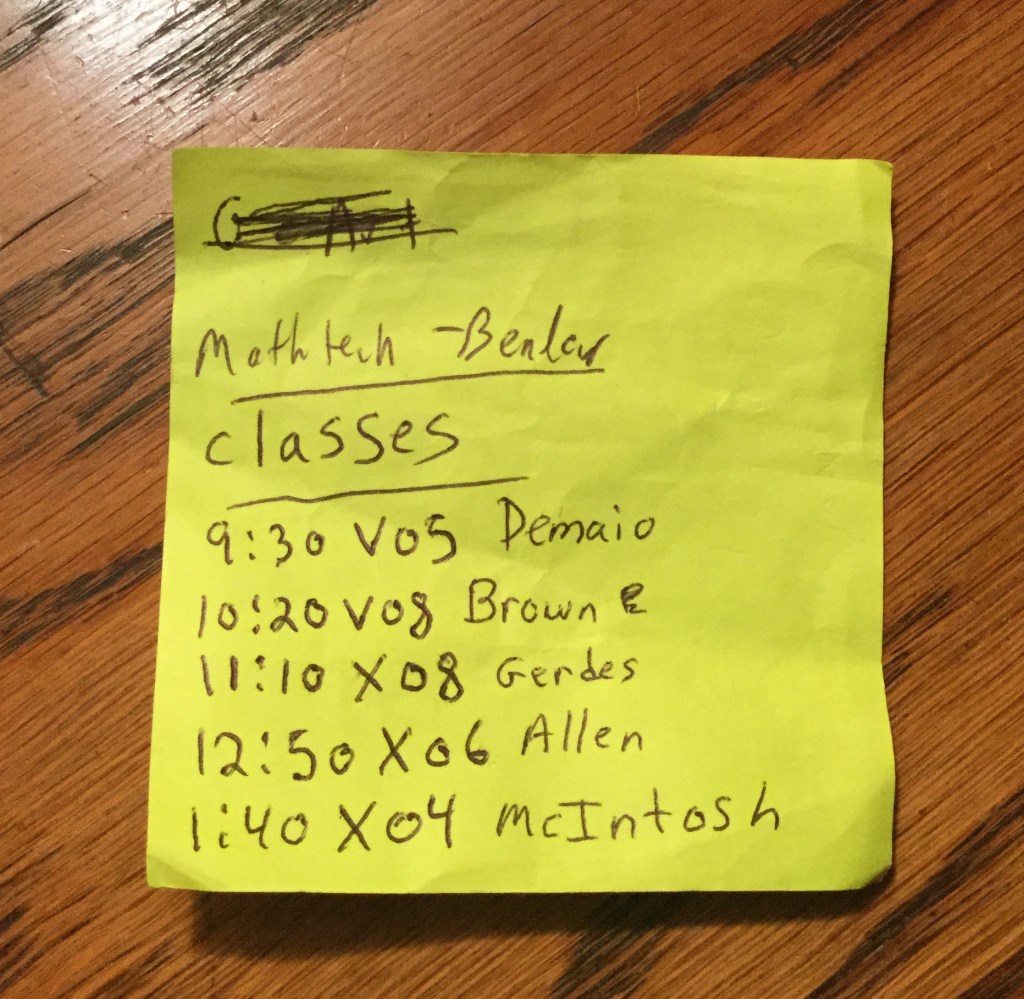 Mathtech
classes
9:30 V05 Demaio
10:20 V08 Brown E
11:10 X08 Gerdes
12:50 X06 Allen
1:40 X04 McIntosh